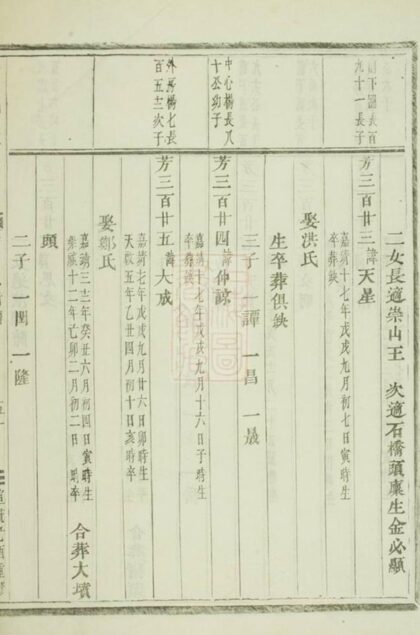 二女長適崇山王 次適石橋頭廩生金必顯
山下園長百
九十一長子
芳三百廿三 諱天星
嘉靖十七年戊戌九月初七日寅時生
卒葬缺
娶洪氏
生卒葬俱缺
三子 一譚 一昌 一晟
中心橋長八
十公幼子
芳三百廿四 諱仲諒
嘉靖十七年戊戌九月十六日子時生
卒葬缺
橋七長
百五十三次子
芳三百廿五 諱大成
嘉靖十七年戊戌九月廿六日卯時生
天啟五年乙丑四月初十日亥時卒
娶鄭氏
嘉靖三十二年癸丑六月初四日寅時生
崇禎十二年己卯二月初二日 時卒
合葬大墳
頭
二子 一閏 一隆